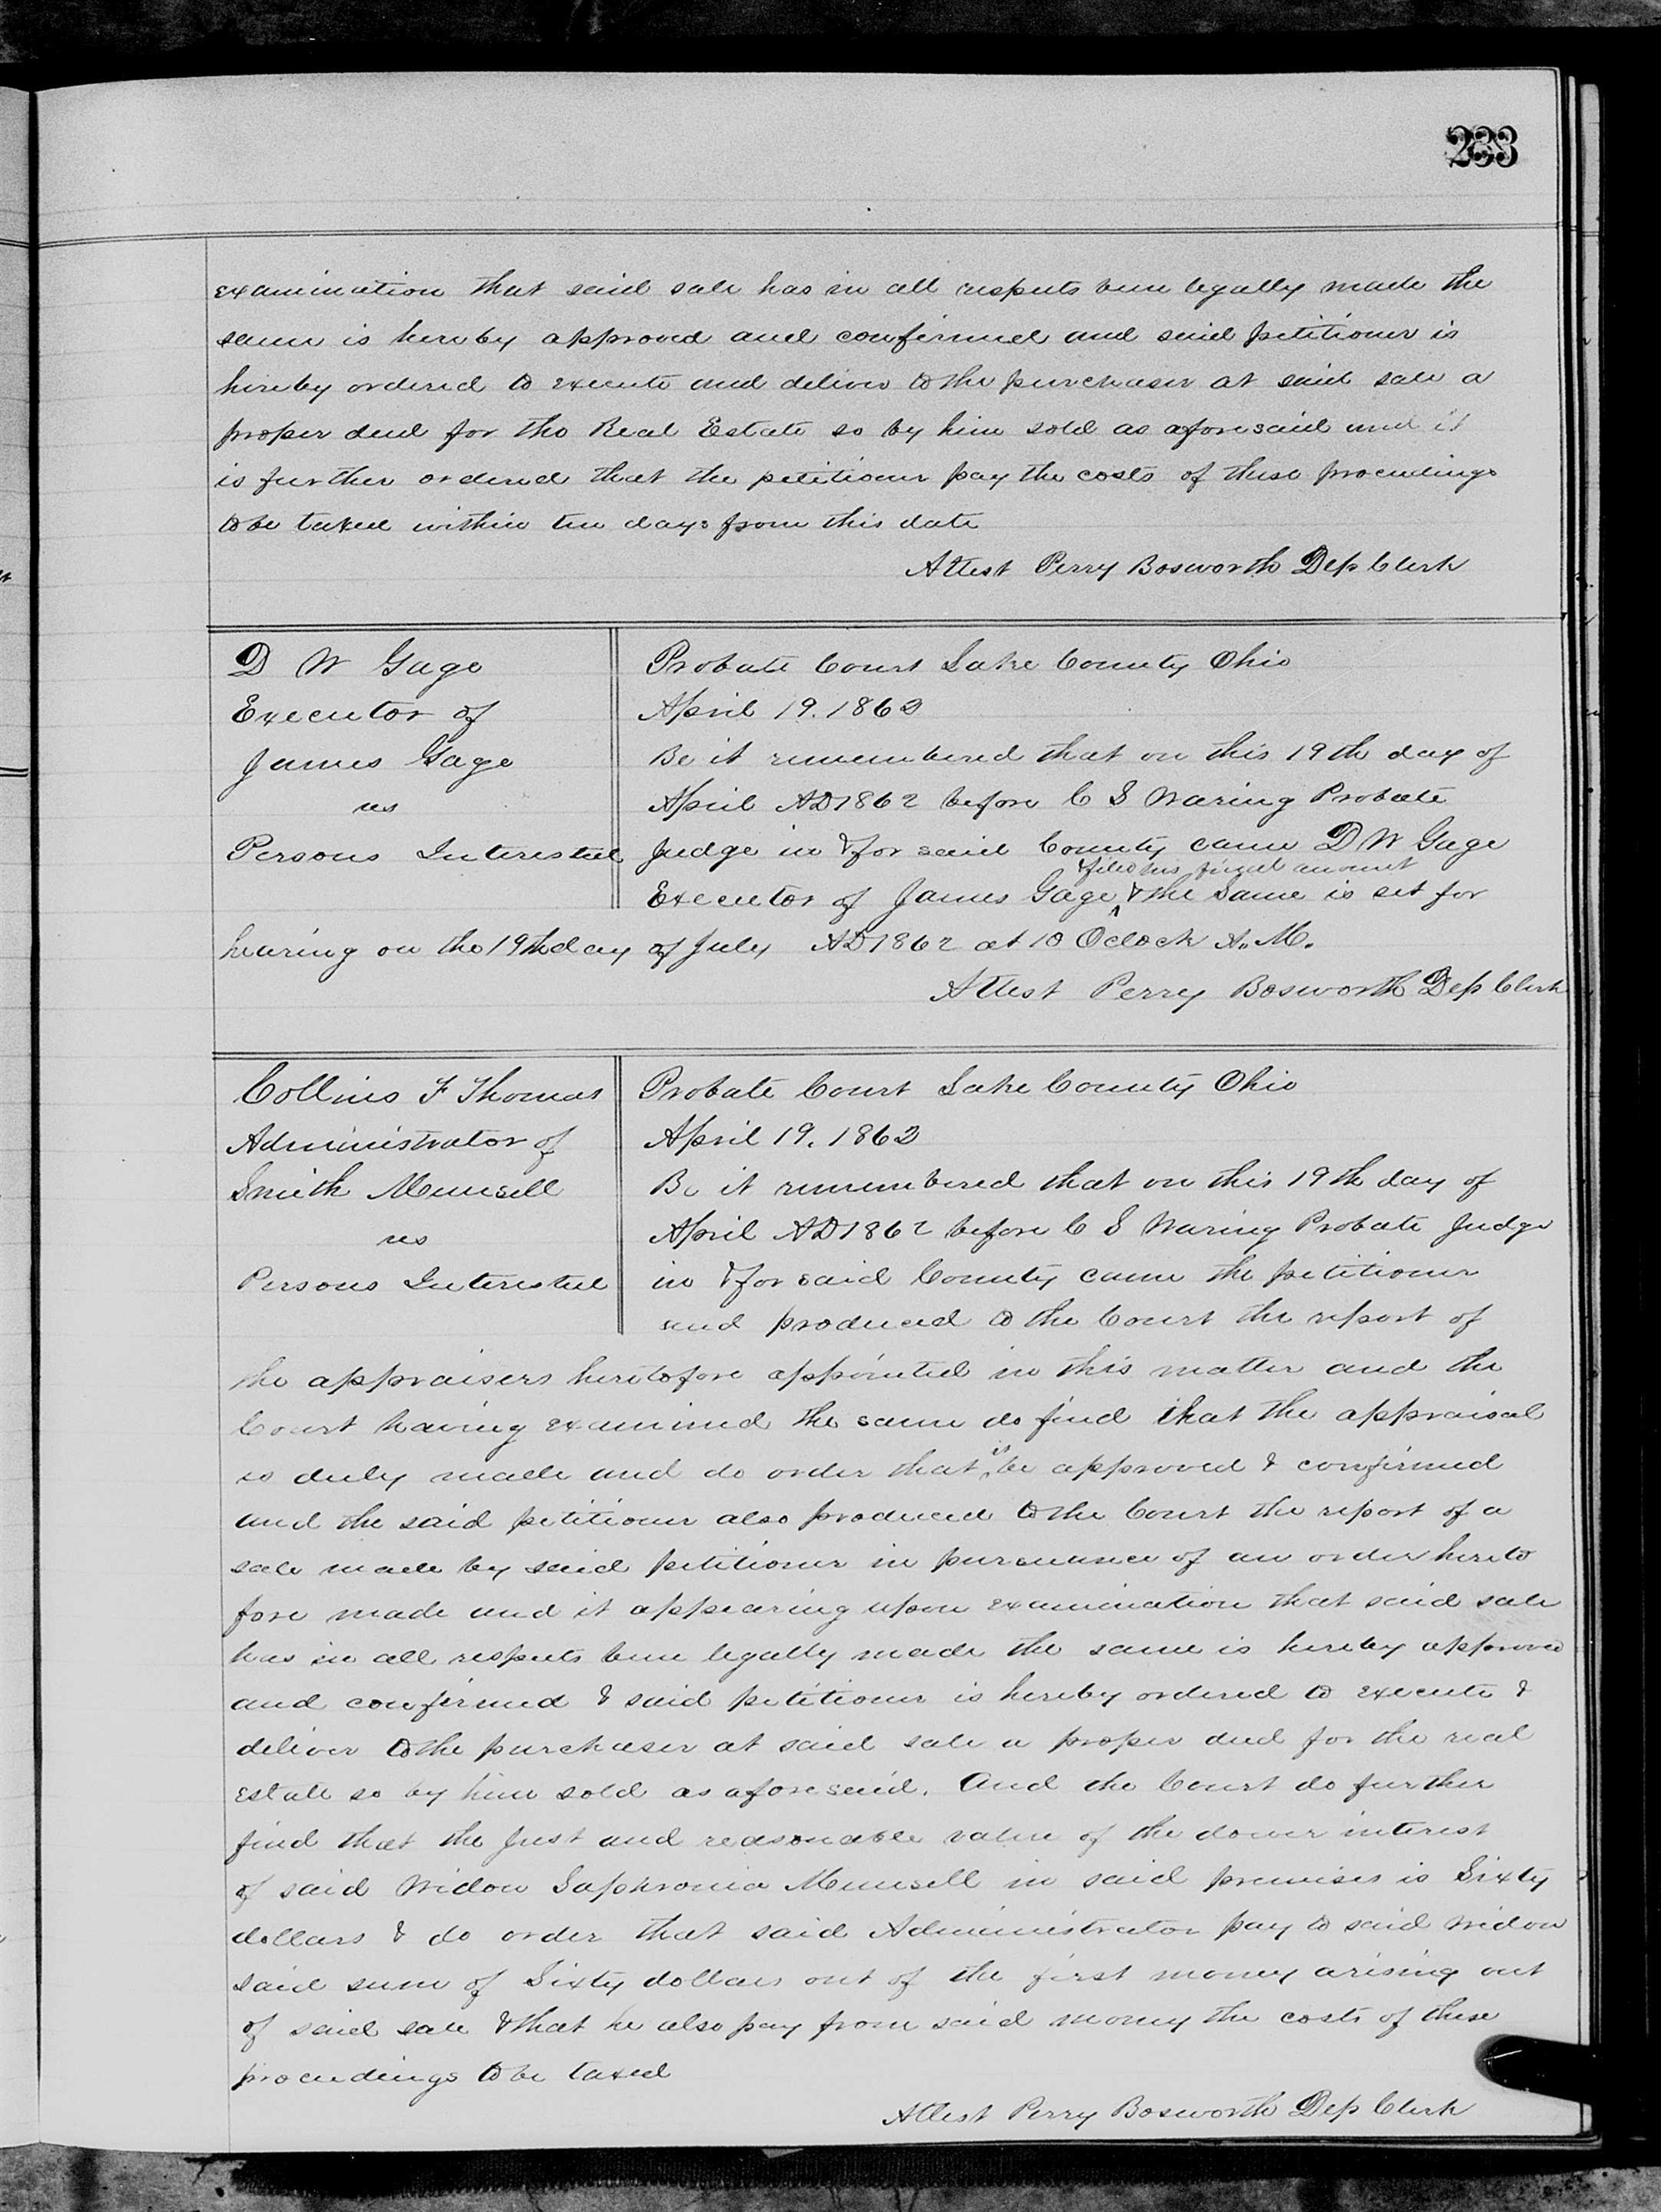 233
examination that said sale has in all respects been legally made the
same is hereby approved and confirmed and said petitioner is
hereby ordered to execute and deliver to the purchaser at said sale a
proper deed for the Real Estate so by him sold as aforesaid and it
is further ordered that the petitioner pay the costs of these proceedings
to be taxed within ten days from this date
Attest Perry Bosworth Dep Clerk
D W Gage
Executor of
James Gage
vs
Persons Interested
Probate Court Lake County Ohio
April 19. 1862
Be it remembered that on this 19th day of
April AD 1862 before C S Waring Probate
Judge in & for said County came D W Gage
& filed his final account
Executor of James Gage ^ & the same is set for
hearing on the 19th day of July AD 1862 at 10 Oclock A. M.
Attest Perry Bosworth Dep Clerk
Collins F Thomas
Administrator of
Smith Munsell
vs
Persons Interested
Probate Court Lake County Ohio
April 19. 1862
Be it remembered that on this 19th day of
April AD 1862 before C S Waring Probate Judge
in & for said County came the petitioner
and produced to the Court the report of
the appraisers heretofore appointed in this matter and the
Court having examined the same do find that the appraisal
is duly made and do order that it be approved & confirmed
and the said petitioner also produced to the Court the report of a
sale made by said petitioner in pursuance of an order hereto
fore made and it appearing upon examination that said sale
has in all respects been legally made the same is hereby approved
and confirmed & said petitioner is hereby ordered to execute &
deliver to the purchaser at said sale a proper deed for the real
Estate so by him sold as aforesaid. And the Court do further
find that the Just and reasonable value of the dower interest
of said Widow Saphronia Munsell in said premises is Sixty
dollars & do order that said Administrator pay to said widow
said sum of Sixty dollars out of the first money arising out
of said sale & that he also pay from said money the costs of these
proceedings to be taxed
Attest Perry Bosworth Dep Clerk